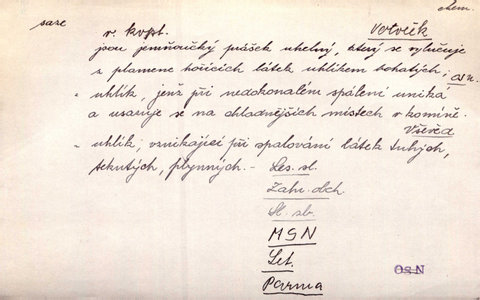 chem.
saze
v. kopt. Votoček
jsou jemňoučký prášek uhelný, který se vylučuje
z plamene hořících látek uhlíkem bohatých; OSN.
" uhlík, jenž při nedokonalém spálení uniká
a usazuje se na chladnějších místech v komíně.
Vševěd
" uhlík, vznikající při spalování látek tuhých,
tekutých, plynných. - Les. sl.
Zahr. obch
St. sb.
MSN
Let.
Parma
OSN